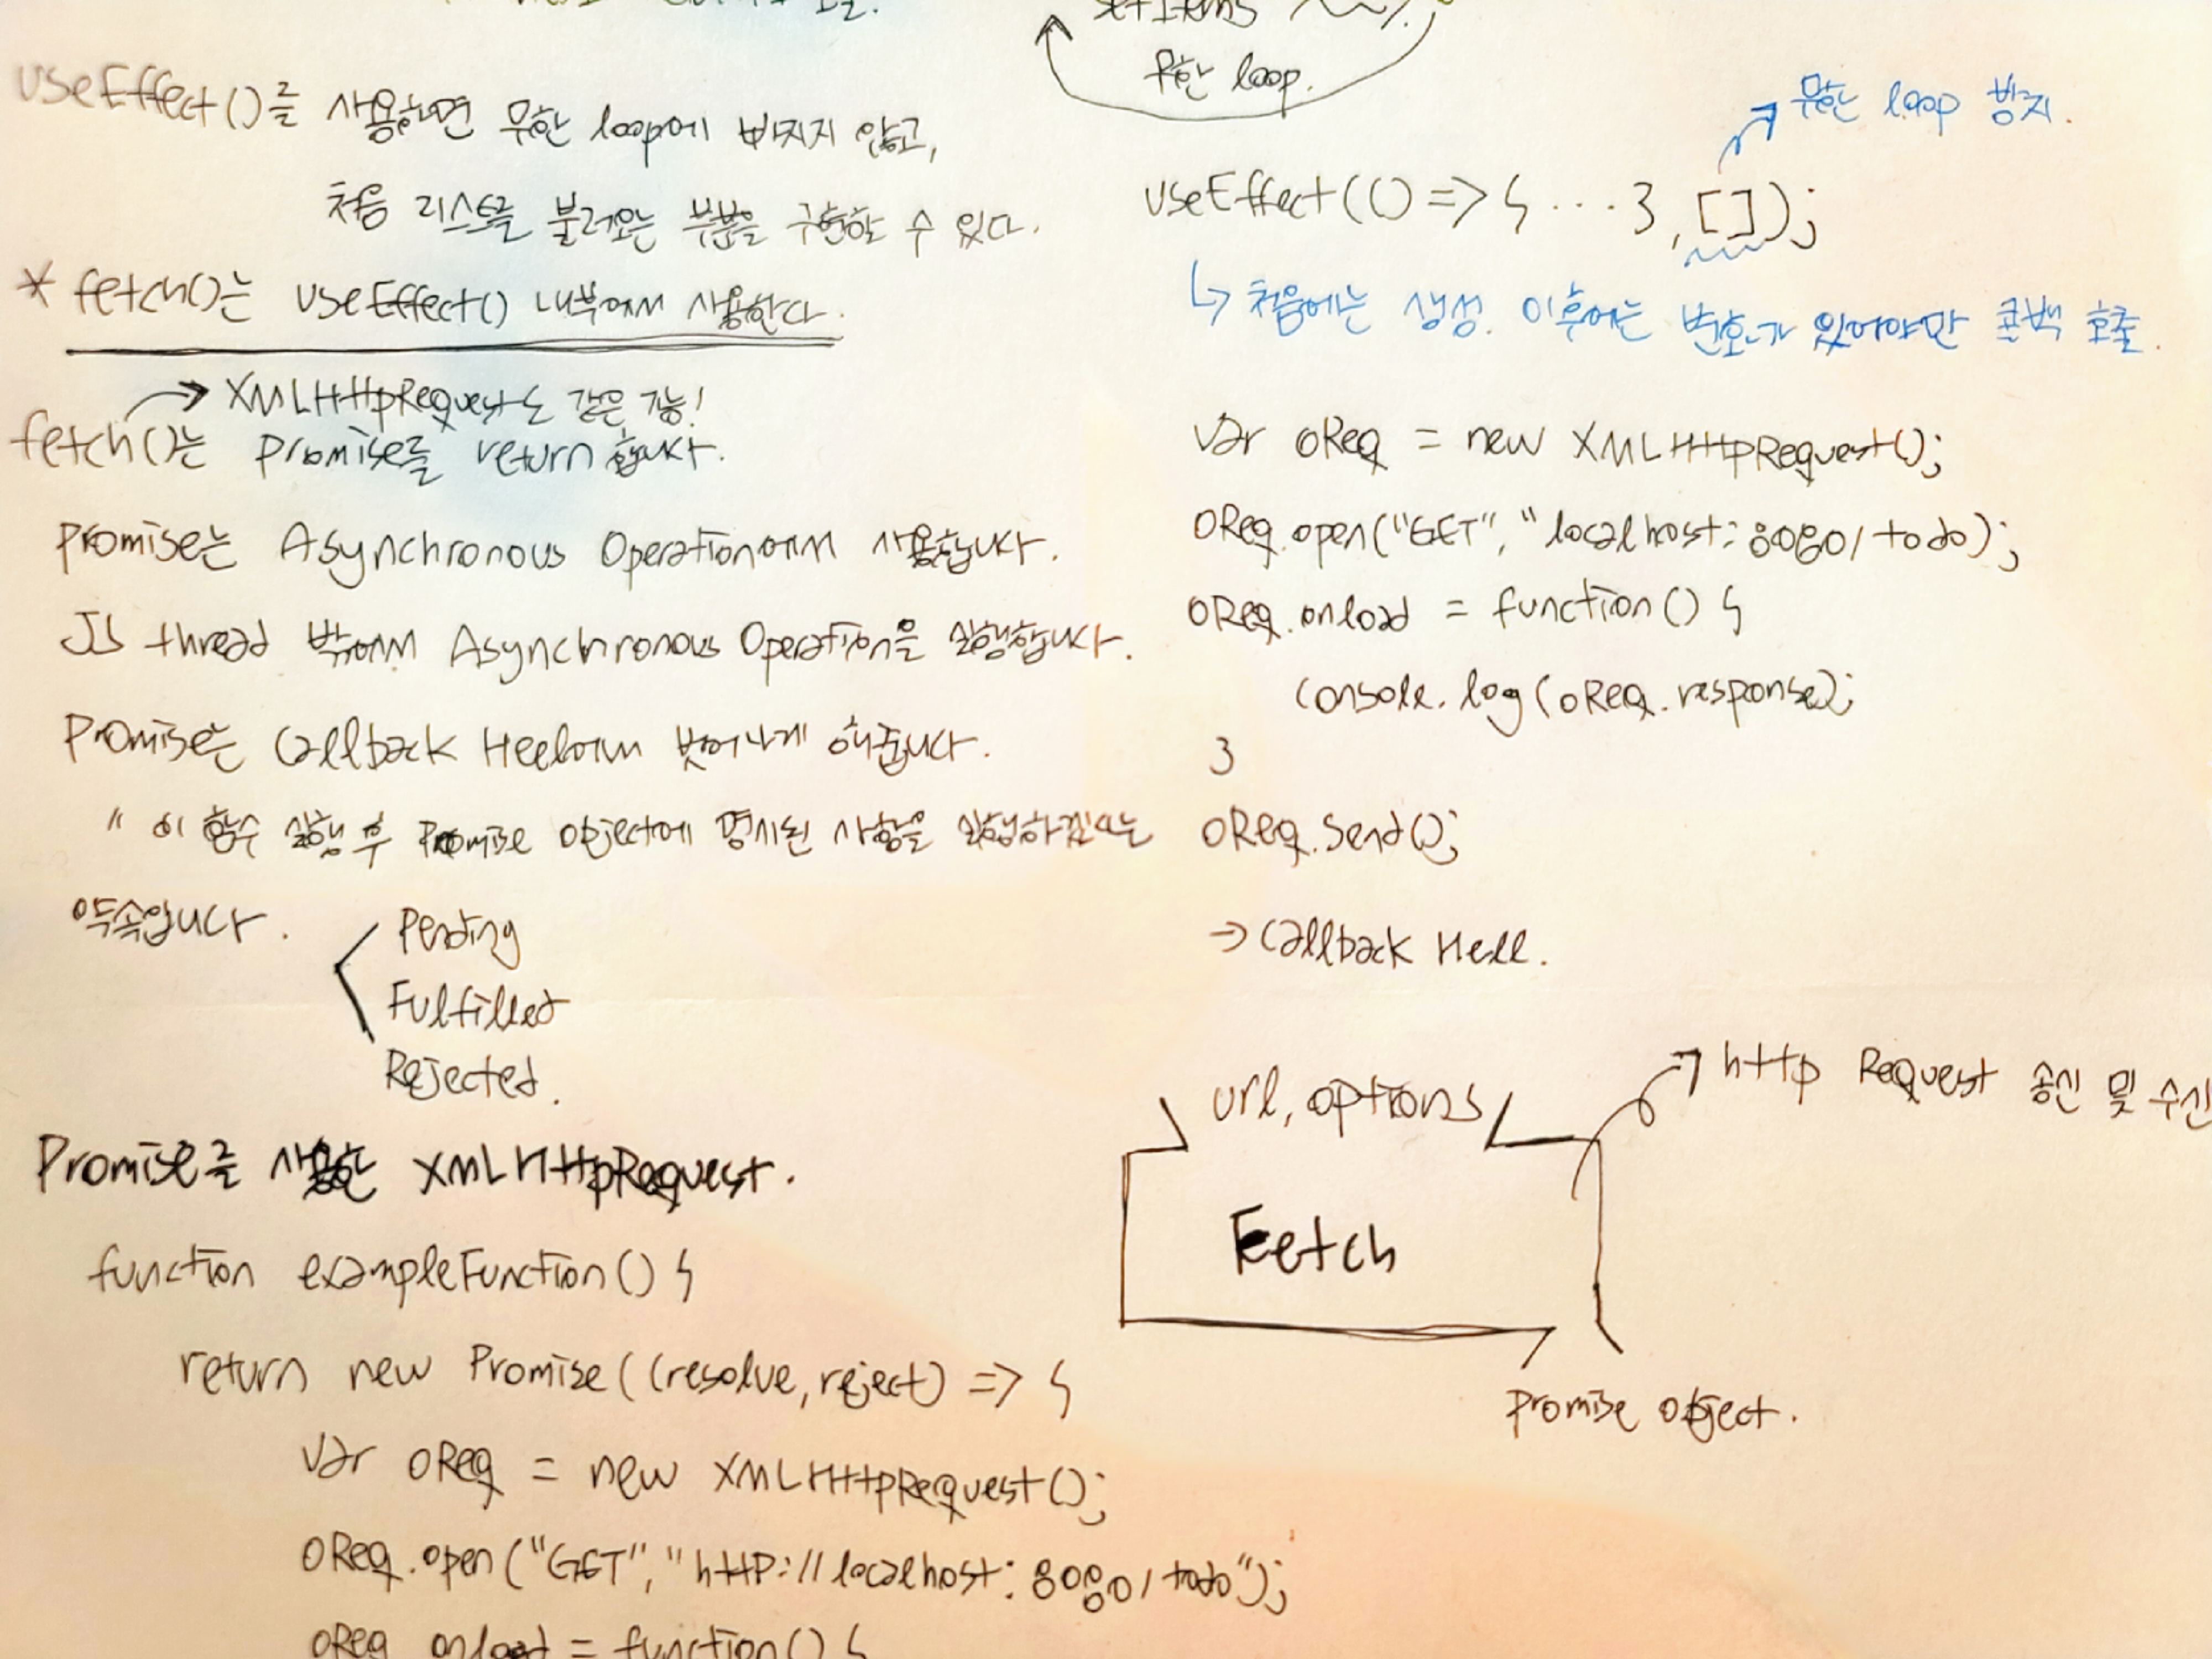 useEffect()를 사용하면 무한 loop에 빠지지 않고,
처음 리스트를 불러오는 부분을 구현할 수 있다.
* fetch()는 useEffect() 내부에서 사용한다.
→ XMLHttpRequest도 같은 기능!
fetch()는 Promise를 return합니다.
Promise는 Asynchronous Operation에서 사용합니다.
JS thread 밖에서 Asynchronous Operation을 실행합니다.
Promise는 Callback Hell에서 벗어나게 해줍니다.
" 이 함수 실행 후 Promise Object에 명시된 사항을 실행하겠다는
약속입니다.
Pending
Fulfilled
Rejected.
Promise를 사용한 XMLHttpRequest.
function exampleFunction() {
return new Promise((resolve, reject) => {
var oReq = new XMLHttpRequest();
oReq.open("GET", "http://localhost:8080/todo");
oReq.onload = function() {
setItems
무한 loop.
무한 loop 방지.
useEffect(() => { ... }, []);
↳ 처음에는 생성. 이후에는 변호가 있어야만 콜백 호출.
var oReq = new XMLHttpRequest();
oReq.open("GET", "localhost:8080/todo);
oReq.onload = function() {
console.log(oReq.response);
}
oReq.send();
→ Callback Hell.
url, options
http Request 송신 및 수신
Fetch
Promise object.